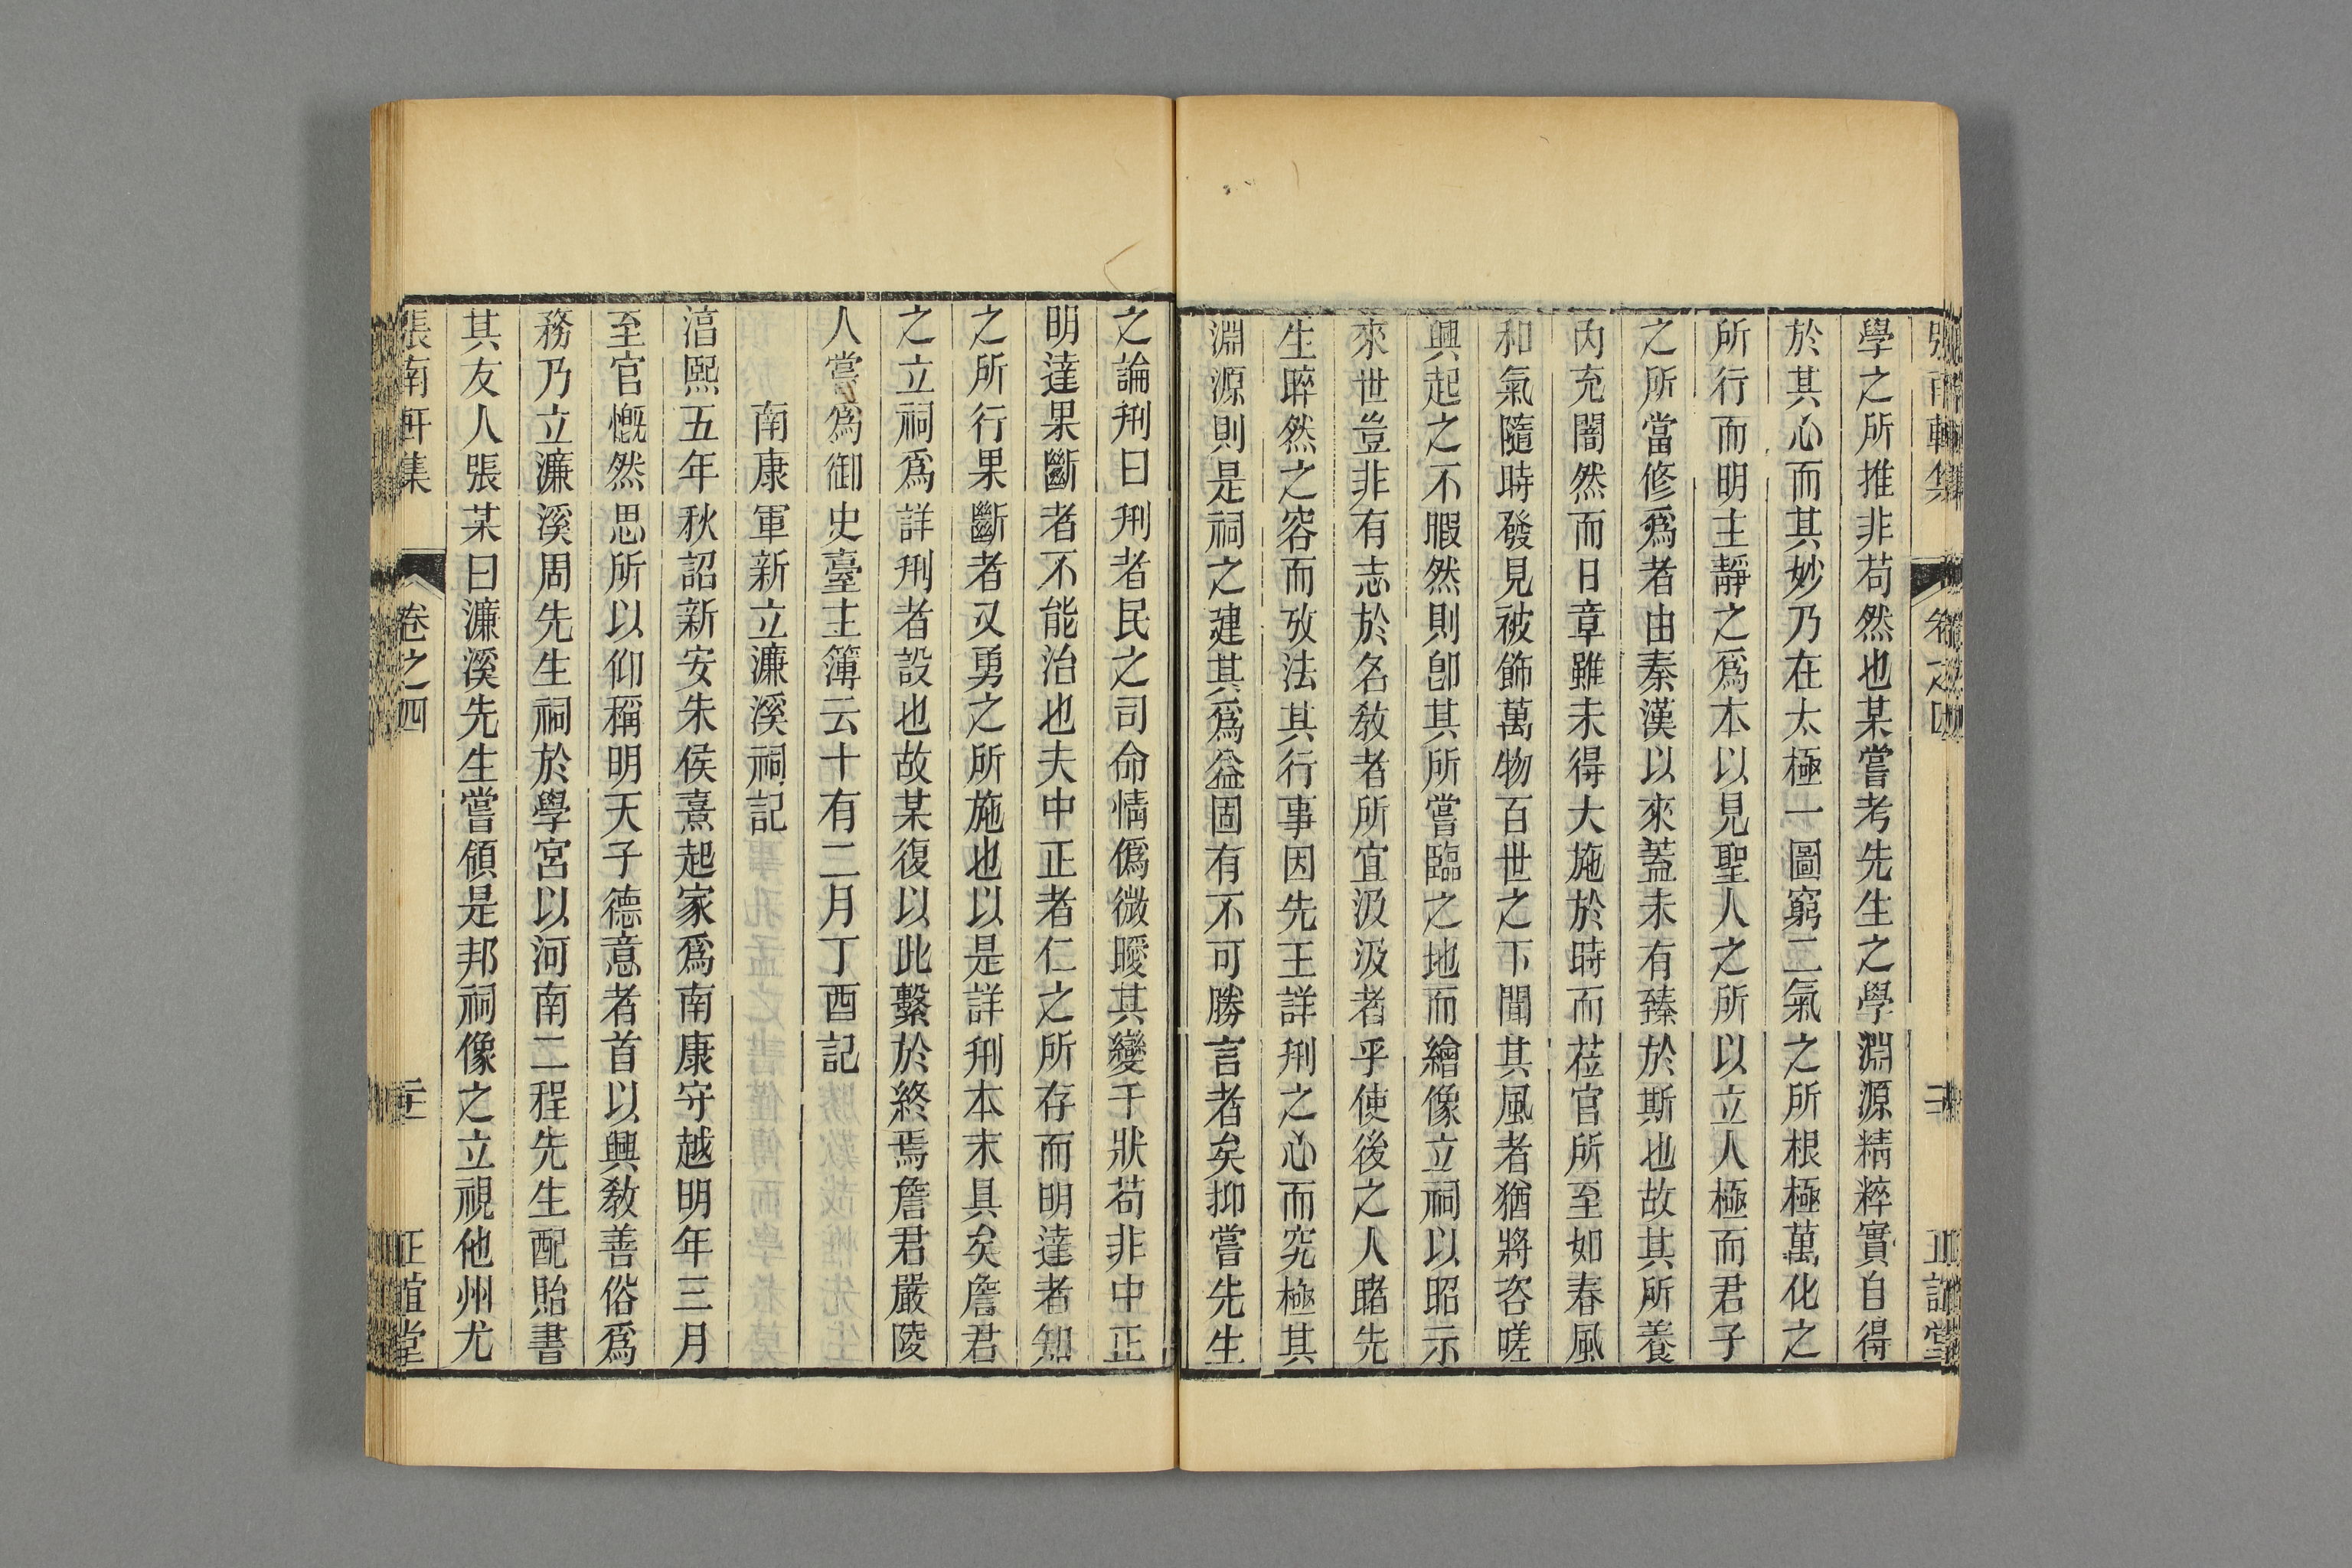 張南軒集
卷之四
正誼堂
學之所推非苟然也某嘗考先生之學淵源精粹實自得
於其心而其妙乃在太極一圖窮二氣之所根極萬化之
所行而明主靜之爲本以見聖人之所以立人極而君子
之所當修爲者由秦漢以來蓋未有臻於斯也故其所養
内充闇然而日章雖未得大施於時而莅官所至如春風
和氣隨時發見被飾萬物百世之下聞其風者猶將咨嗟
興起之不暇然則卽其所嘗臨之地而繪像立祠以昭示
來世豈非有志於名敎者所宜汲汲者乎使後之人睹先
生睟然之容而攷法其行事因先王詳刑之心而究極其
淵源則是祠之建其爲益固有不可勝言者矣抑嘗先生
之論刑曰刑者民之司命情僞微曖其變千狀苟非中正
明達果斷者不能治也夫中正者仁之所存而明達者知
之所行果斷者又勇之所施也以是詳刑本末具矣詹君
之立祠爲詳刑者設也故某復以此繫於終焉詹君嚴陵
人嘗爲御史臺主簿云十有二月丁酉記
南康軍新立濂溪祠記
淳熙五年秋詔新安朱侯熹起家爲南康守越明年三月
至官慨然思所以仰稱明天子德意者首以興敎善俗爲
務乃立濂溪周先生祠於學宮以河南二程先生配貽書
其友人張某曰濂溪先生嘗領是邦祠像之立視他州尤
張南軒集
卷之四
二十一
正誼堂